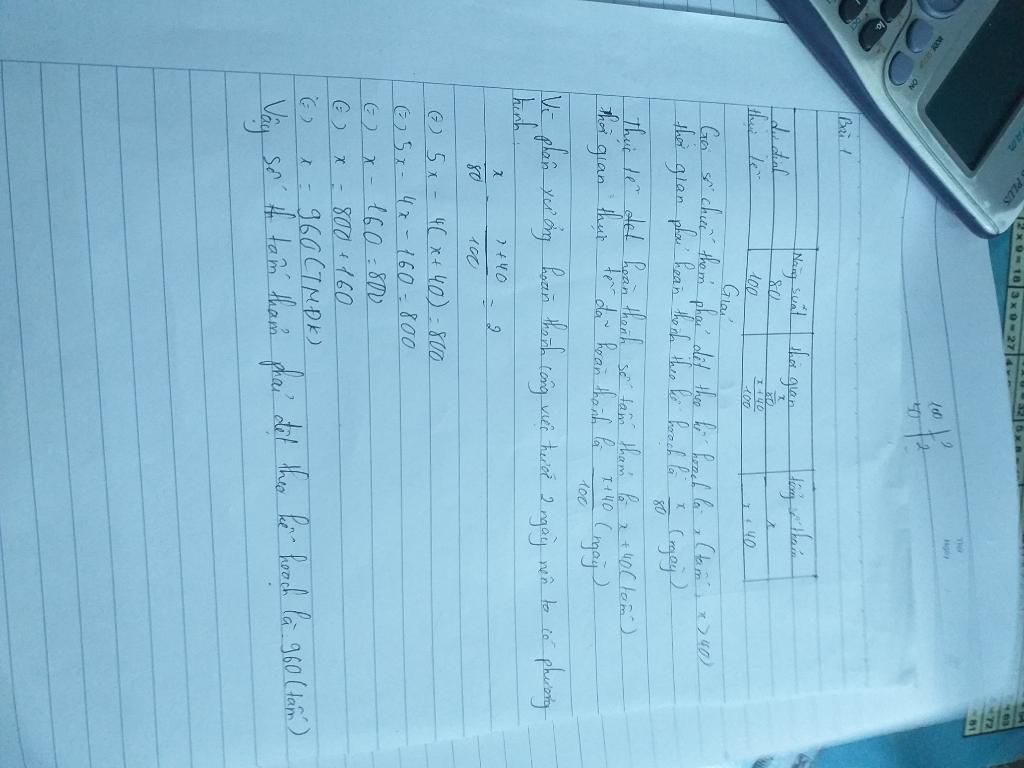 Bài 1
Năng suất thời gian tổng số thảm
dự định 80 x/80 x
thực tế 100 x+40/100 x+40
Giải
Gọi số chiếc thảm phải dệt theo kế hoạch là x (tấm, x>40)
thời gian phải hoàn thành theo kế hoạch là x/80 (ngày)
Thực tế dệt hoàn thành số tấm thảm là x+40 (tấm)
Thời gian thực tế đã hoàn thành là x+40/100 (ngày)
Vì phân xưởng hoàn thành công việc trước 2 ngày nên ta có phương
trình
x/80 - x+40/100 = 2
(=) 5x - 4(x+40) = 800
(=) 5x - 4x - 160 = 800
(=) x - 160 = 800
(=) x = 800 + 160
(=) x = 960 (TMĐK)
Vậy số tấm thảm phải dệt theo kế hoạch là 960 (tấm)
PLUS
MODE
ON
2 x 9 = 18
3 x 9 = 27